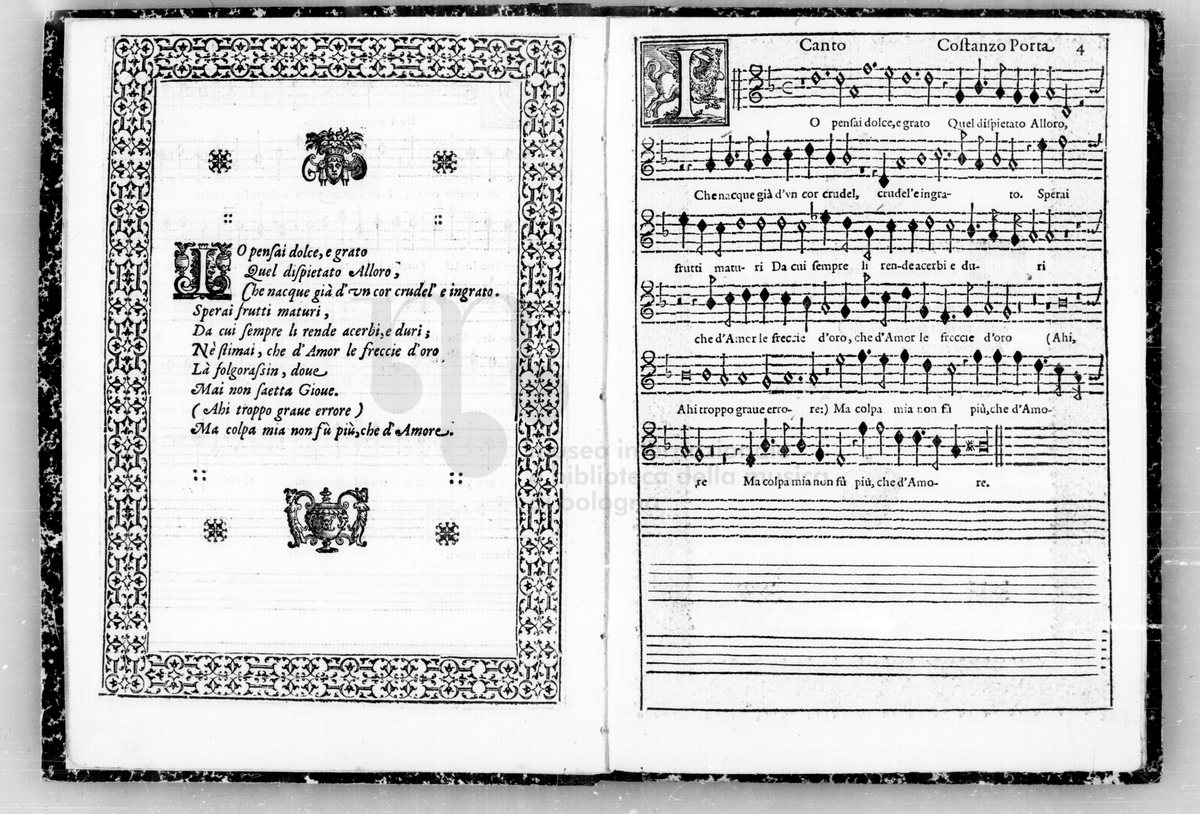 IO pensai dolce, e grato
Quel dispietato Alloro,
Che nacque già d'vn cor crudel' e ingrato.
Sperai frutti maturi,
Da cui sempre li rende acerbi, e duri;
Nè stimai, che d'Amor le freccie d'oro
Là folgorassin, doue
Mai non saetta Gioue.
(Ahi troppo graue errore)
Ma colpa mia non fù più, che d'Amore.
Canto Costanzo Porta 4
IO pensai dolce, e grato Quel dispietato Alloro,
Che nacque già d'vn cor crudel, crudel'e ingra- to. Sperai
frutti matu- ri Da cui sempre li rende acerbi e du- ri
che d'Amor le freccie d'oro, che d'Amor le freccie d'oro (Ahi,
Ahi troppo graue erro- re:) Ma colpa mia non fù più, che d'Amo-
re Ma colpa mia non fù più, che d'Amo- re.
museo internazionale
biblioteca della musica
bologna